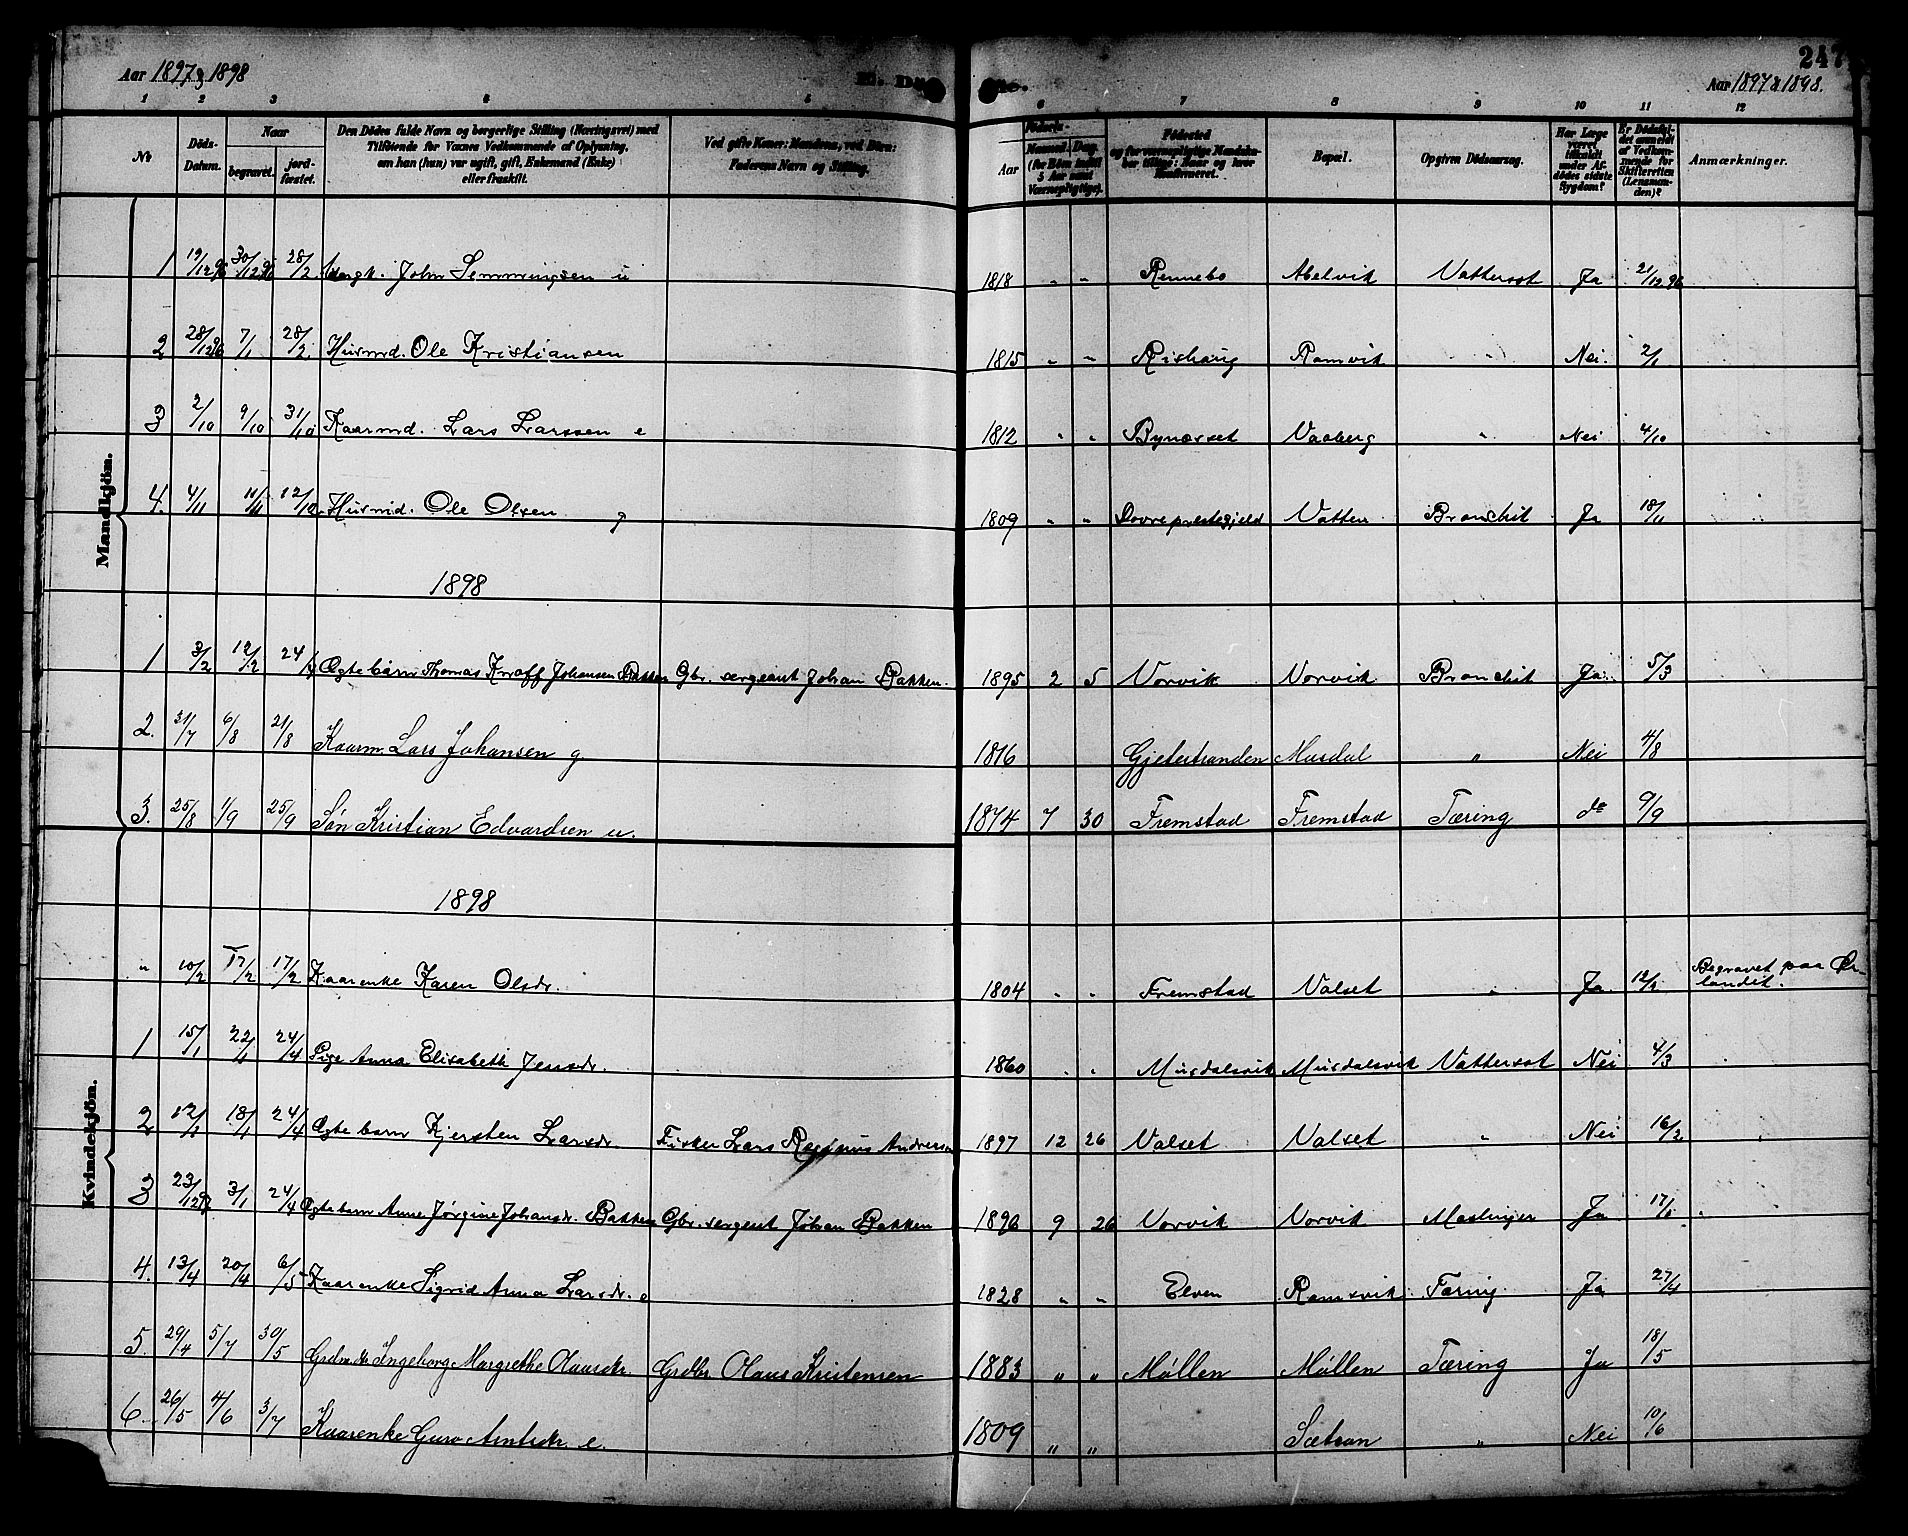 247
Aar 1897 & 1898 E. Dø de. Aar 1897 & 1898.
1 2 3 4 5 6 7 8 9 10 11 12
No
Døds-Datum.
Naar
begravet.
jord-fæstet.
Den Dødes fulde Navn og borgerlige Stilling (Næringsvei) med
Tilføiende for Voxnes Vedkommende af Oplysning,
om han (hun) var ugift, gift, Enkemand (Enke)
eller fraskilt.
Ved gifte Koner: Mandens, ved Børn:
Faderens Navn og Stilling.
Aar
Maaned. Dag.
(for Børn indtil
5 Aar samt
Værnepligtige).
Fødested
og for værnepligtige Mandskaber tillige: Naar og hvor
Konfirmeret.
Bopæl.
Opgiven Dødsaarsag.
Har Læge
været
tilkaldt
under Afdødes sidste
Sygdom?
Er Dødsfaldet anmeldt
af Vedkommende for
Skifteretten
(Lensmanden)?
Anmærkninger.
Mandkjön.
1 19/12 96 30/12 96 28/2 John Semmingsen u 1818 " " Rennebo Abelvik Vattersot Ja 21/12 96
2 28/12 96 7/1 28/2 Husmd. Ole Kristiansen 1815 " " Rishaug Ramvik " Nei. 2/1
3 2/10 9/10 31/10 Kaarmd. Lars Larssen e 1812 " " Bynæsset Vaaberg " Nei 4/10
4. 4/11 11/11 12/12 Husmd. Ole Olsen g 1809 " " Dovre prestegjeld Vatten Bronchit Ja 18/11
1898
1 3/2 12/2 24/4 Ægte barn Thomas Kraff Johansen Bakken Gbr. sergeant Johan Bakken. 1895 2 5 Vorvik Vorvik Bronchit Ja. 5/3
2. 31/7 6/8 21/8 Kaarm. Lars Johansen g. 1816 Gjeterstranden Musdal " Nei 4/8
3. 25/8 1/9 25/9 Søn Kristian Edvardsen u. 1874 7 30 Fremstad Fremstad Tæring do 9/9
1898
Kvindekjön.
" 10/2 17/2 17/2 Kaarenke Karen Olsdr. 1804 " " Fremstad Valset " Ja 12/2 Begravet paa Ør-
landet.
1 15/1 22/1 24/4 Pige Anna Elisabeth Jensdr. 1860 " " Musdalsvik Musdalsvik Vattersot Nei 4/3
2 12/1 18/1 24/4 Ægte barn Kjersten Larsdr. Fisker Lars Andersen 1897 12 26 Valset Valset " Nei 16/2
3 23/12 97 3/1 24/4 Ægte barn Anne Jørgine Johansdr. Bakken Gbr. sergent Johan Bakken 1896 9 26 Vorvik Vorvik Mæslinger Ja 17/1
4. 13/4 20/4 6/5 Kaarenke Sigrid Anna Larsdr. e 1828 " " Elven Ramsvik Tæring. Ja 27/4
5. 29/4 5/7 30/5 Grdmdtr Ingeborg Margrethe Olausdtr. Grdbr. Olaus Kristensen 1883 " " Møllen Møllen Tæring Ja 18/5
6 26/5 4/6 3/7 Kaarenke Guro Arntsdtr. e. 1809 " " Sætran " Nei 10/6